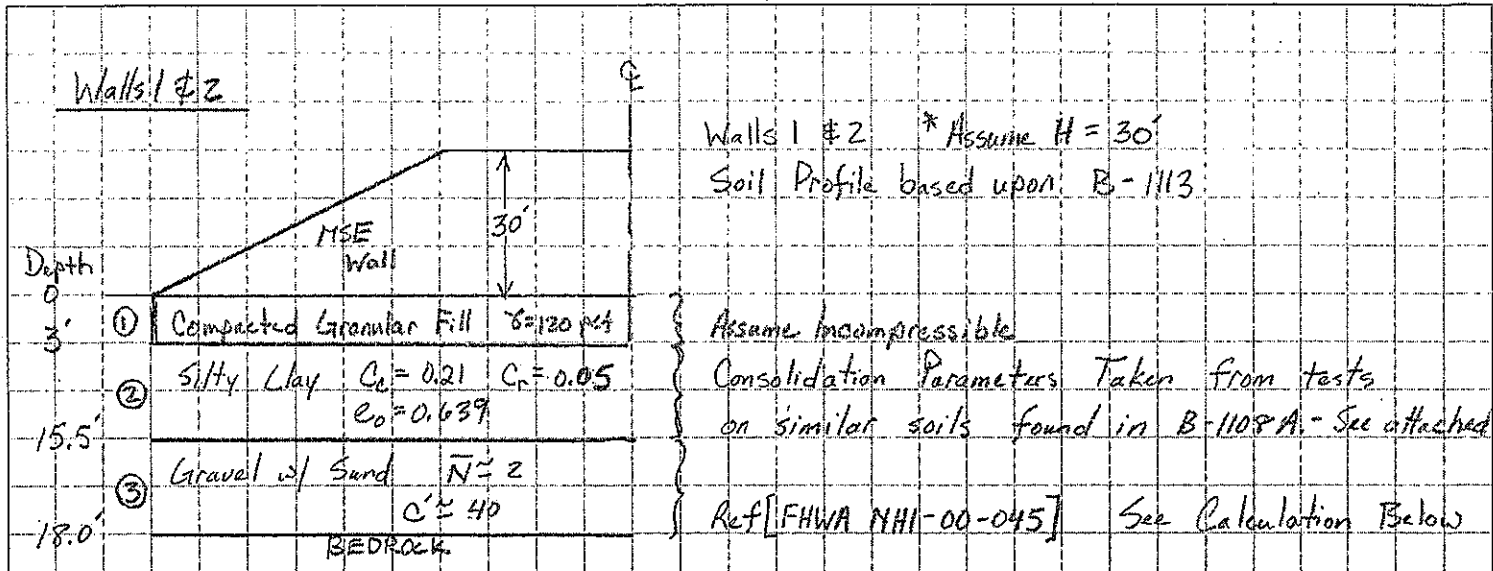 Walls 1 & 2
℄
Walls 1 & 2 * Assume H = 30'
Soil Profile based upon B-1113
30'
MSE
Wall
Depth
0
① Compacted Granular Fill γ=120 pcf
Assume Incompressible
3'
② Silty Clay Cc = 0.21 Cr = 0.05
e₀ = 0.639
Consolidation Parameters Taken from tests
on similar soils found in B-1108A. - See attached
15.5'
③ Gravel w/ Sand N̄ ≅ 2
C' ≅ 40
Ref [FHWA NHI-00-045] See Calculation Below
18.0'
BEDROCK